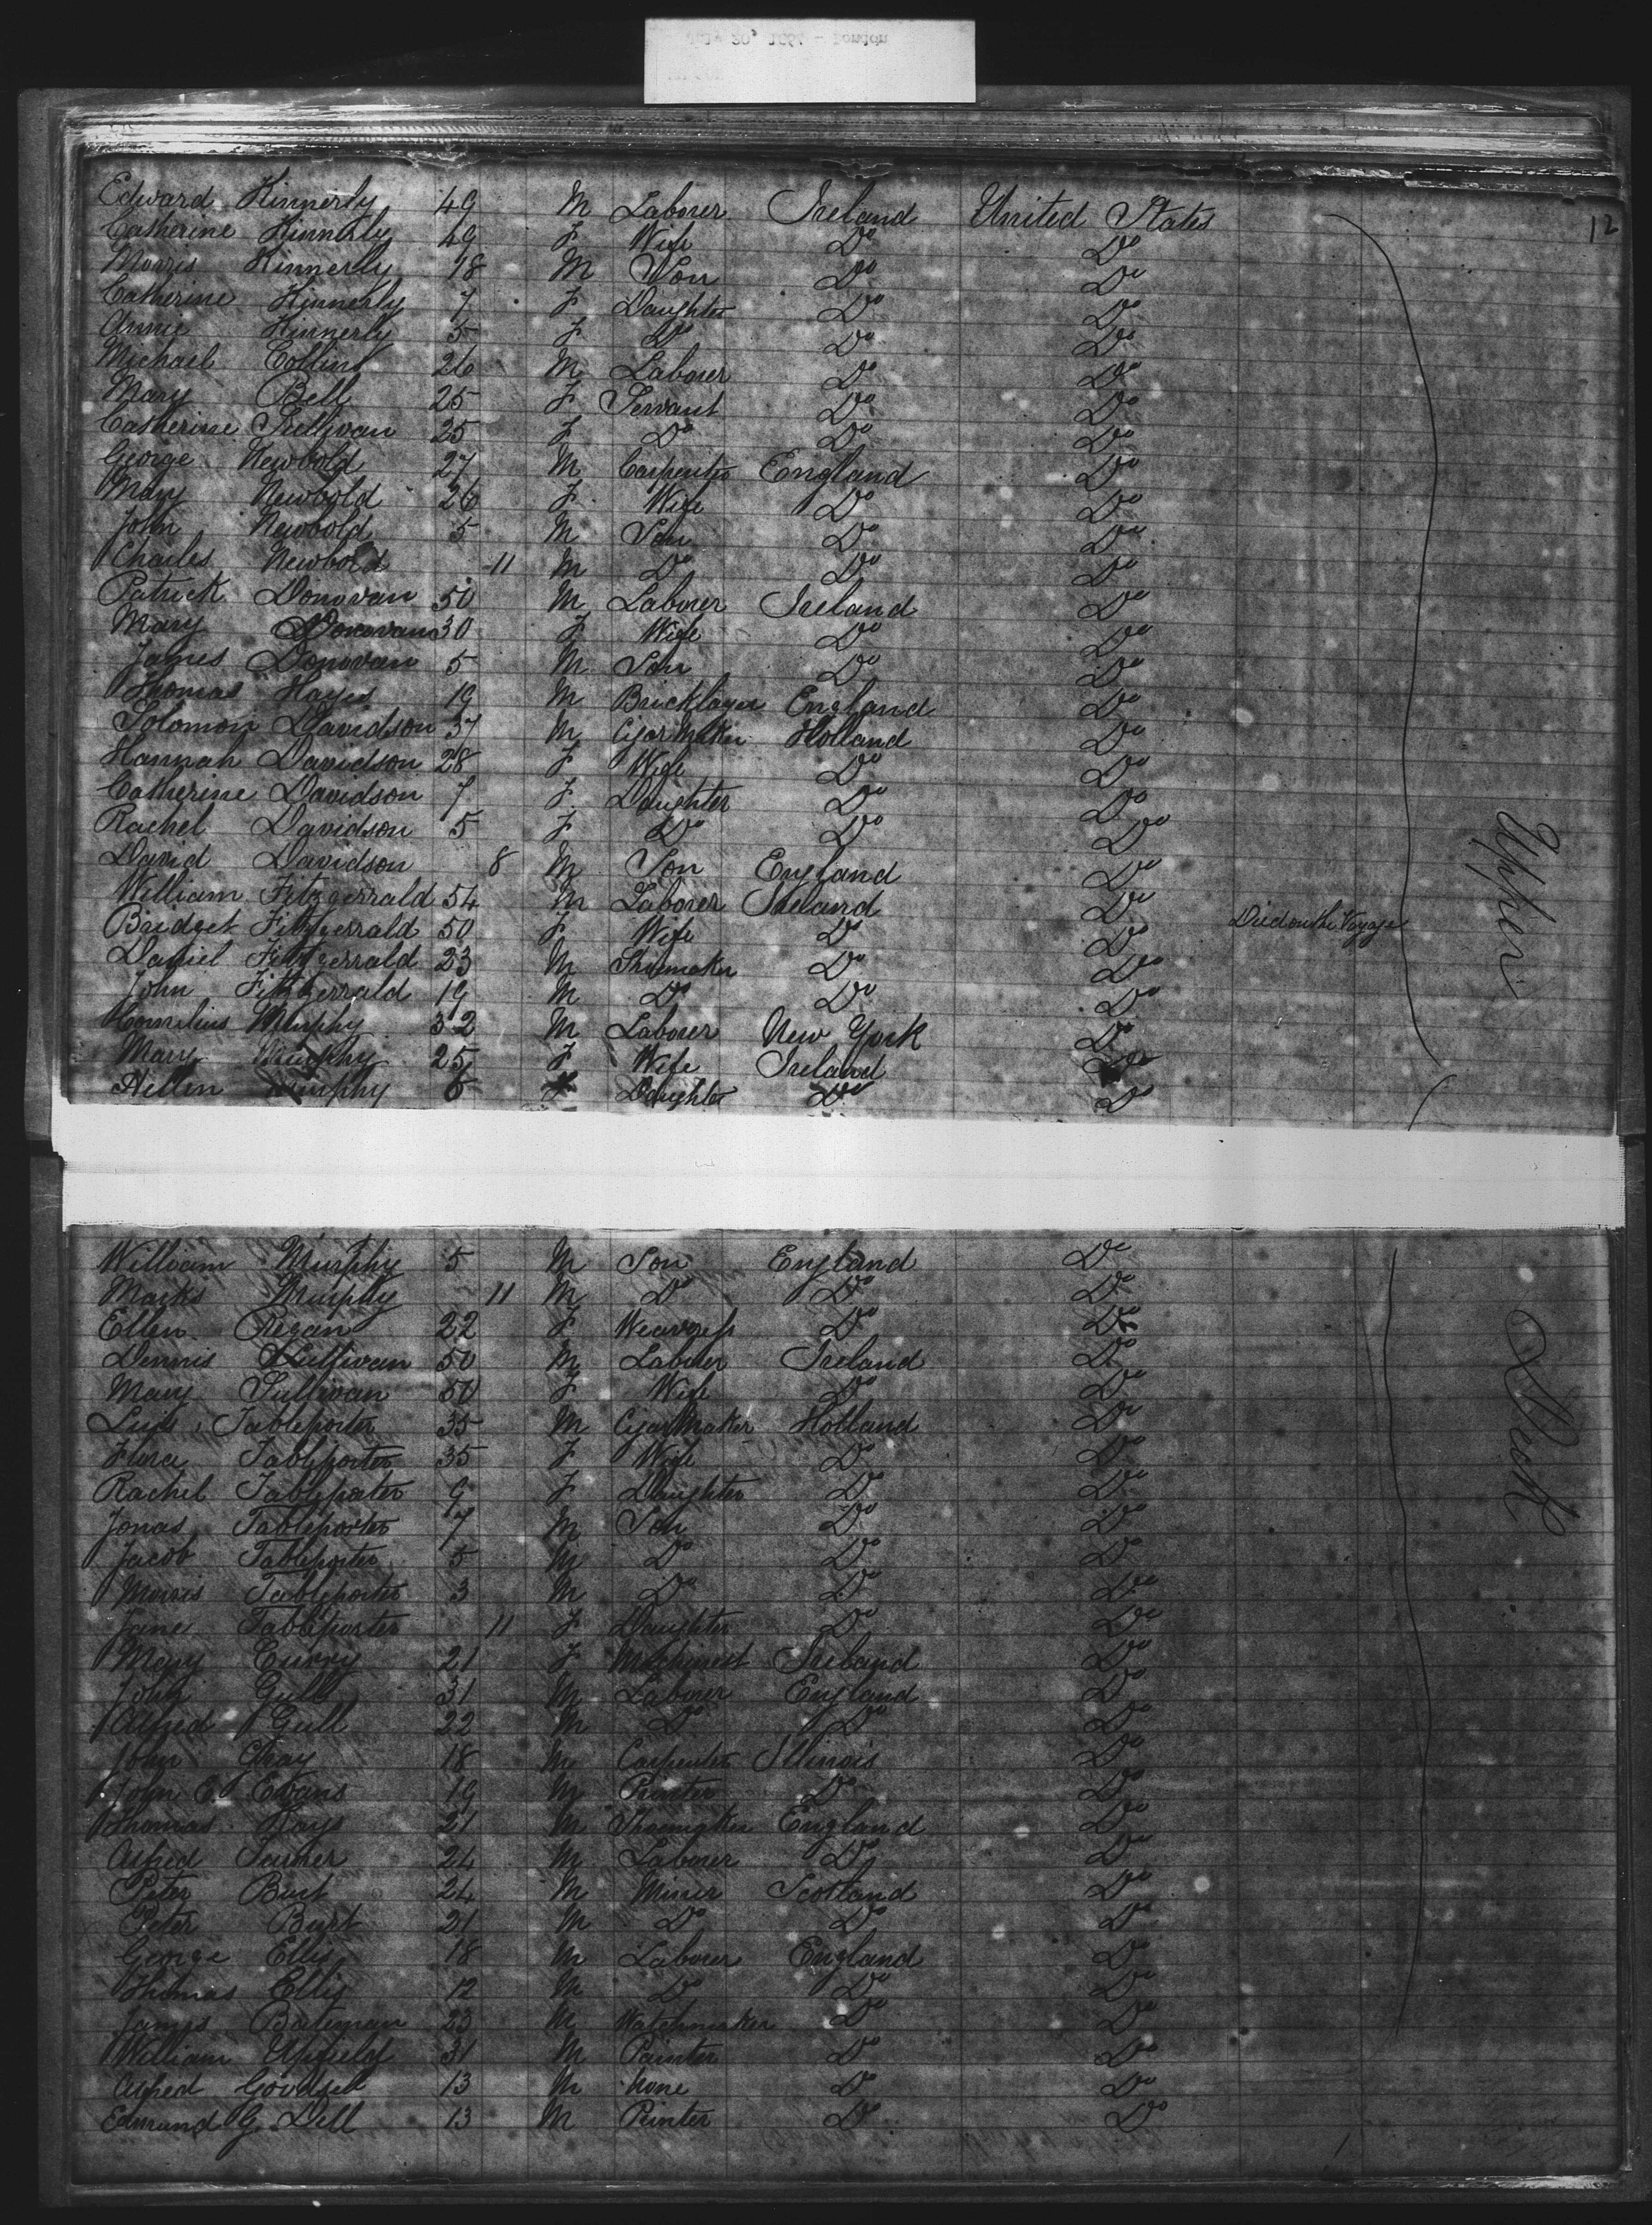 12
Edward Kinnerly 49 M Laborer Ireland United States
Catherine Kinnerly 49 F Wife Do Do
Morris Kinnerly 18 M Son Do Do
Catherine Kinnerly 7 F Daughter Do Do
Annie Kinnerly 5 F Do Do Do
Michael Collins 26 M Laborer Do Do
Mary Bell 25 F Servant Do Do
Catherine Sullivan 25 F Do Do Do
George Newbold 27 M Carpenter England Do
Mary Newbold 26 F Wife Do Do
John Newbold 5 M Son Do Do
Charles Newbold 11 M Do Do Do
Patrick Donovan 50 M Laborer Ireland Do
Mary Donovan 30 F Wife Do Do
James Donovan 5 M Son Do Do
Thomas Hayes 19 M Bricklayer England Do
Solomon Davidson 37 M Cigar Maker Holland Do
Hannah Davidson 28 F Wife Do Do
Catherine Davidson 7 F Daughter Do Do
Rachel Davidson 5 F Do Do Do
David Davidson 8 M Son England Do
William Fitzgerrald 54 M Laborer Ireland Do
Bridget Fitzgerrald 50 F Wife Do Do Died on the Voyage
Daniel Fitzgerrald 23 M Shoemaker Do Do
John Fitzgerrald 19 M Do Do Do
Kornelius Murphy 32 M Laborer New York Do
Mary Murphy 25 F Wife Ireland Do
Hellen Murphy 6 F Daughter Do Do
Upper
William Murphy 5 M Son England Do
Marks Murphy 11 M Do Do Do
Ellen Regan 22 F Do Do
Dennis Sullivan 50 M Laborer Ireland Do
Mary Sullivan 50 F Wife Do Do
Tableporter 35 M Cigar Maker Holland Do
Tableporter 35 F Wife Do Do
Rachel Tableporter 9 F Daughter Do Do
Jonas Tableporter 7 M Son Do Do
Jacob Tableporter 5 M Do Do Do
Morris Tableporter 3 M Do Do Do
Jane Tableporter 11 F Daughter Do Do
Mary Curry 21 F Machinest Ireland Do
John Gull 31 M Laborer England Do
Alfred Gull 22 M Do Do Do
John Gray 18 M Carpenter Illinois Do
John E. Evans 19 M Printer Do Do
Thomas Hays 21 M Shoemaker England Do
Alfred 24 M Laborer Do Do
Peter Burt 24 M Miner Scotland Do
Peter Burt 21 M Do Do Do
George Ellis 18 M Laborer England Do
Thomas Ellis 12 M Do Do Do
James Bateman 23 M Watchmaker Do Do
William Upfield 31 M Painter Do Do
Alfred 13 M None Do Do
Edmund G. Dell 13 M Printer Do Do
Deck